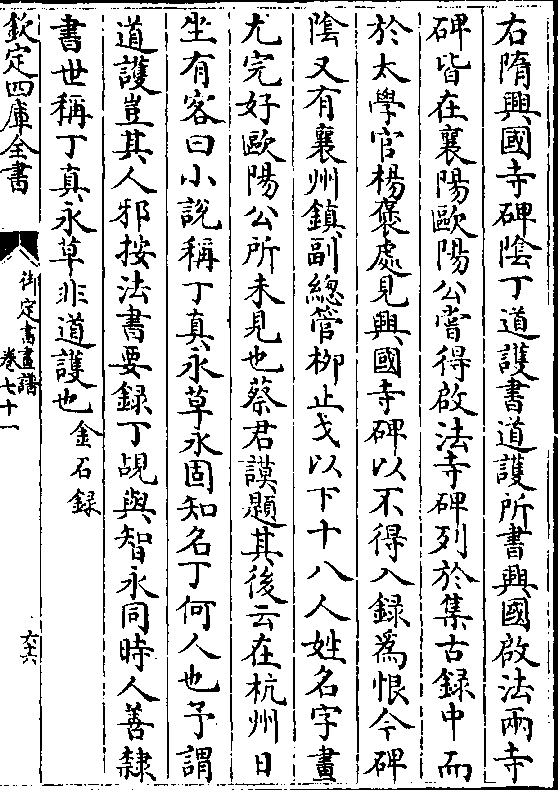 右隋興國寺碑陰丁道護書道護所書興國啟法兩寺
碑皆在襄陽歐陽公嘗得啟法寺碑列於集古録中而
於太學官楊褒處見興國寺碑以不得入録為恨今碑
陰又有襄州鎮副總管栁止戈以下十八人姓名字畫
尤完好歐陽公所未見也蔡君謨題其後云在杭州日
坐有客曰小說稱丁真永草永固知名丁何人也予謂
道護豈其人邪按法書要録丁覘與智永同時人善隸
書世稱丁真永草非道護也金石録
欽定四庫全書
御定書畫譜
卷七十一
六六